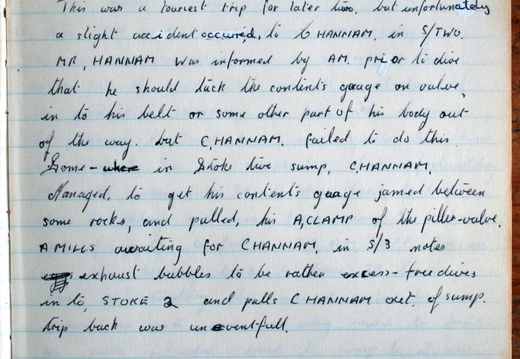 This was a tourist trip for later two. but unfortunately
a slight accident occured, to C HANNAM. in S/TWO.
MR, HANNAM was informed by AM. prior to dive
that he should tuck the contents guage on valve,
in to his belt or some other part of his body out
of the way. but C, HANNAM. failed to do this.
Some-where in Stoke two sump, C, HANNAM.
Managed, to get his contents guage jamed between
some rocks, and pulled, his A,CLAMP of the piller-valve.
A MILLS awaiting for C HANNAM, in S/3 notes
exhaust bubbles to be rather excess- free dives
in to, STOKE 2 and pulls C HANNAM out of sump.
trip back was uneventfull.